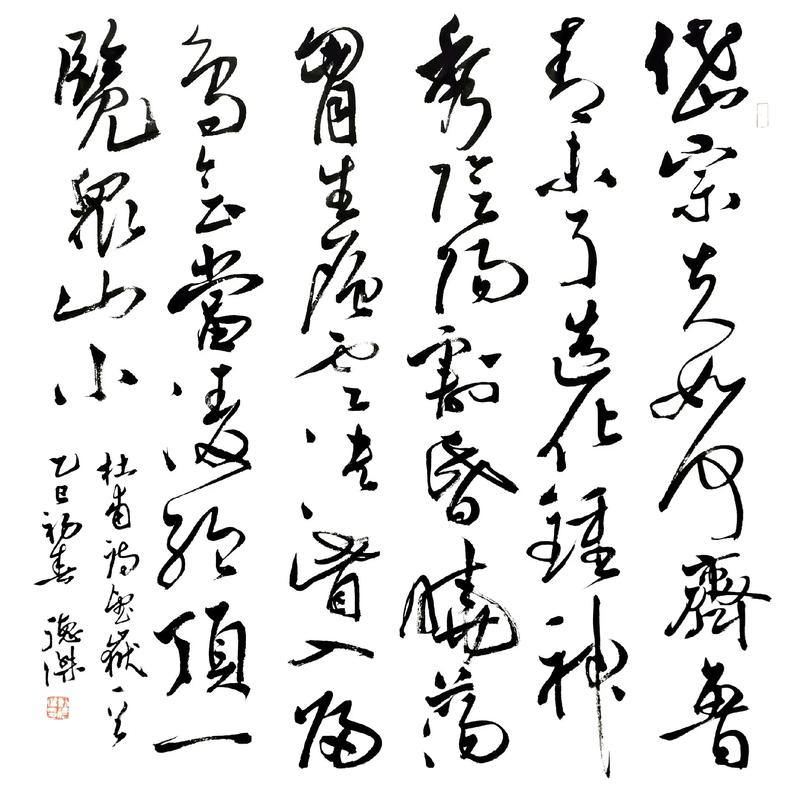 岱宗夫如何齊魯
青未了造化鍾神
秀陰陽割昏曉蕩
胷生層雲决眥入歸
鳥會當凌絕頂一
覽衆山小
杜甫詩望嶽一首
乙巳初春 德傑